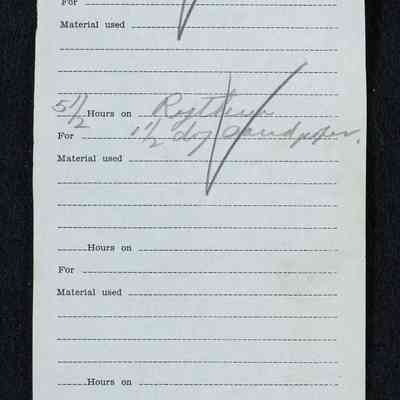 For
Material used
5 1/2 Hours on
For 1 1/2 doz Sandpaper.
Material used
Hours on
For
Material used
Hours on